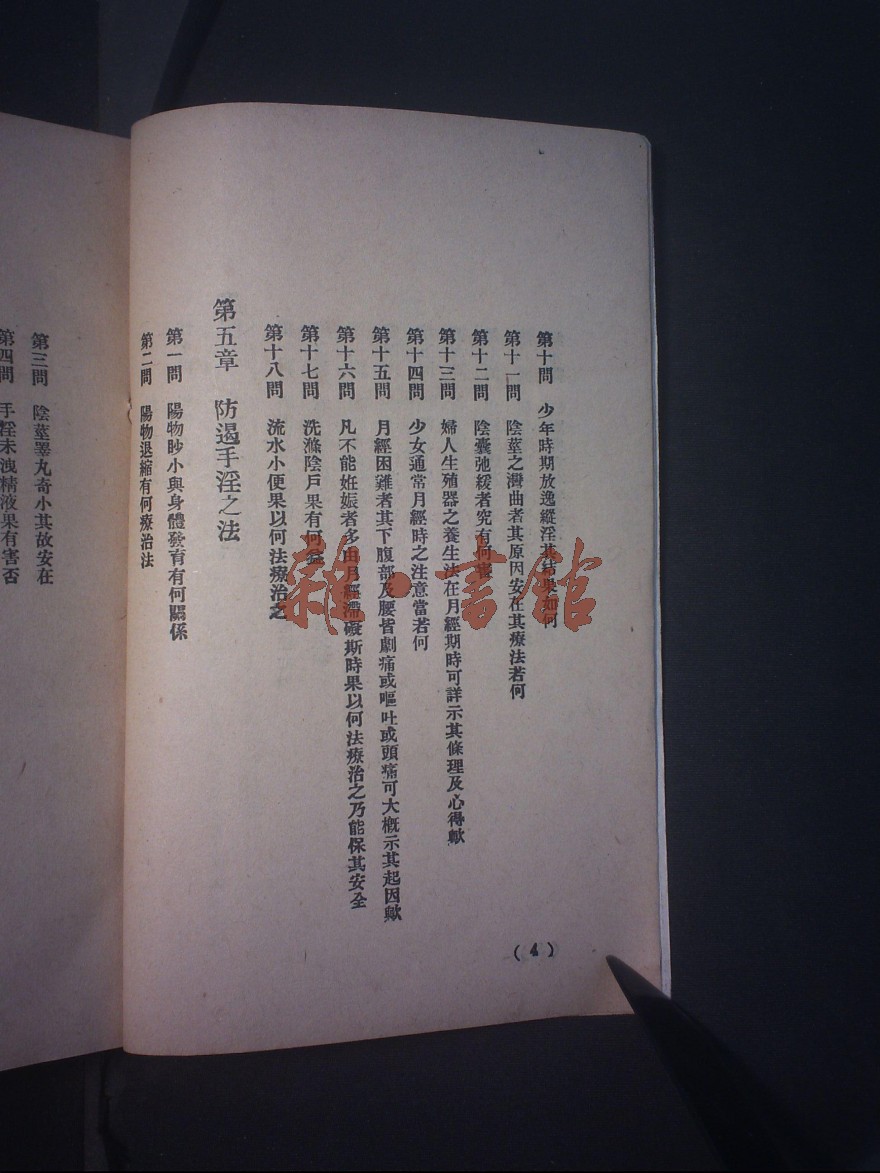 第十問　少年時期放逸縱淫其結果如何
第十一問　陰莖之灣曲者其原因安在其療法若何
第十二問　陰囊弛緩者究有何害
第十三問　婦人生殖器之養生法在月經期時可詳示其條理及心得歟
第十四問　少女通常月經時之注意當若何
第十五問　月經困難者其下腹部及腰皆劇痛或嘔吐或頭痛可大概示其起因歟
第十六問　凡不能妊娠者多由月經滯礙斯時果以何法療治之乃能保其安全
第十七問　洗滌陰戶果有何益
第十八問　流水小便果以何法療治之
第五章　防遏手淫之法
第一問　陽物眇小與身體發育有何關係
第二問　陽物退縮有何療治法
(4)
第三問　陰莖睾丸奇小其故安在
第四問　手淫未洩精液果有害否
雜·書館